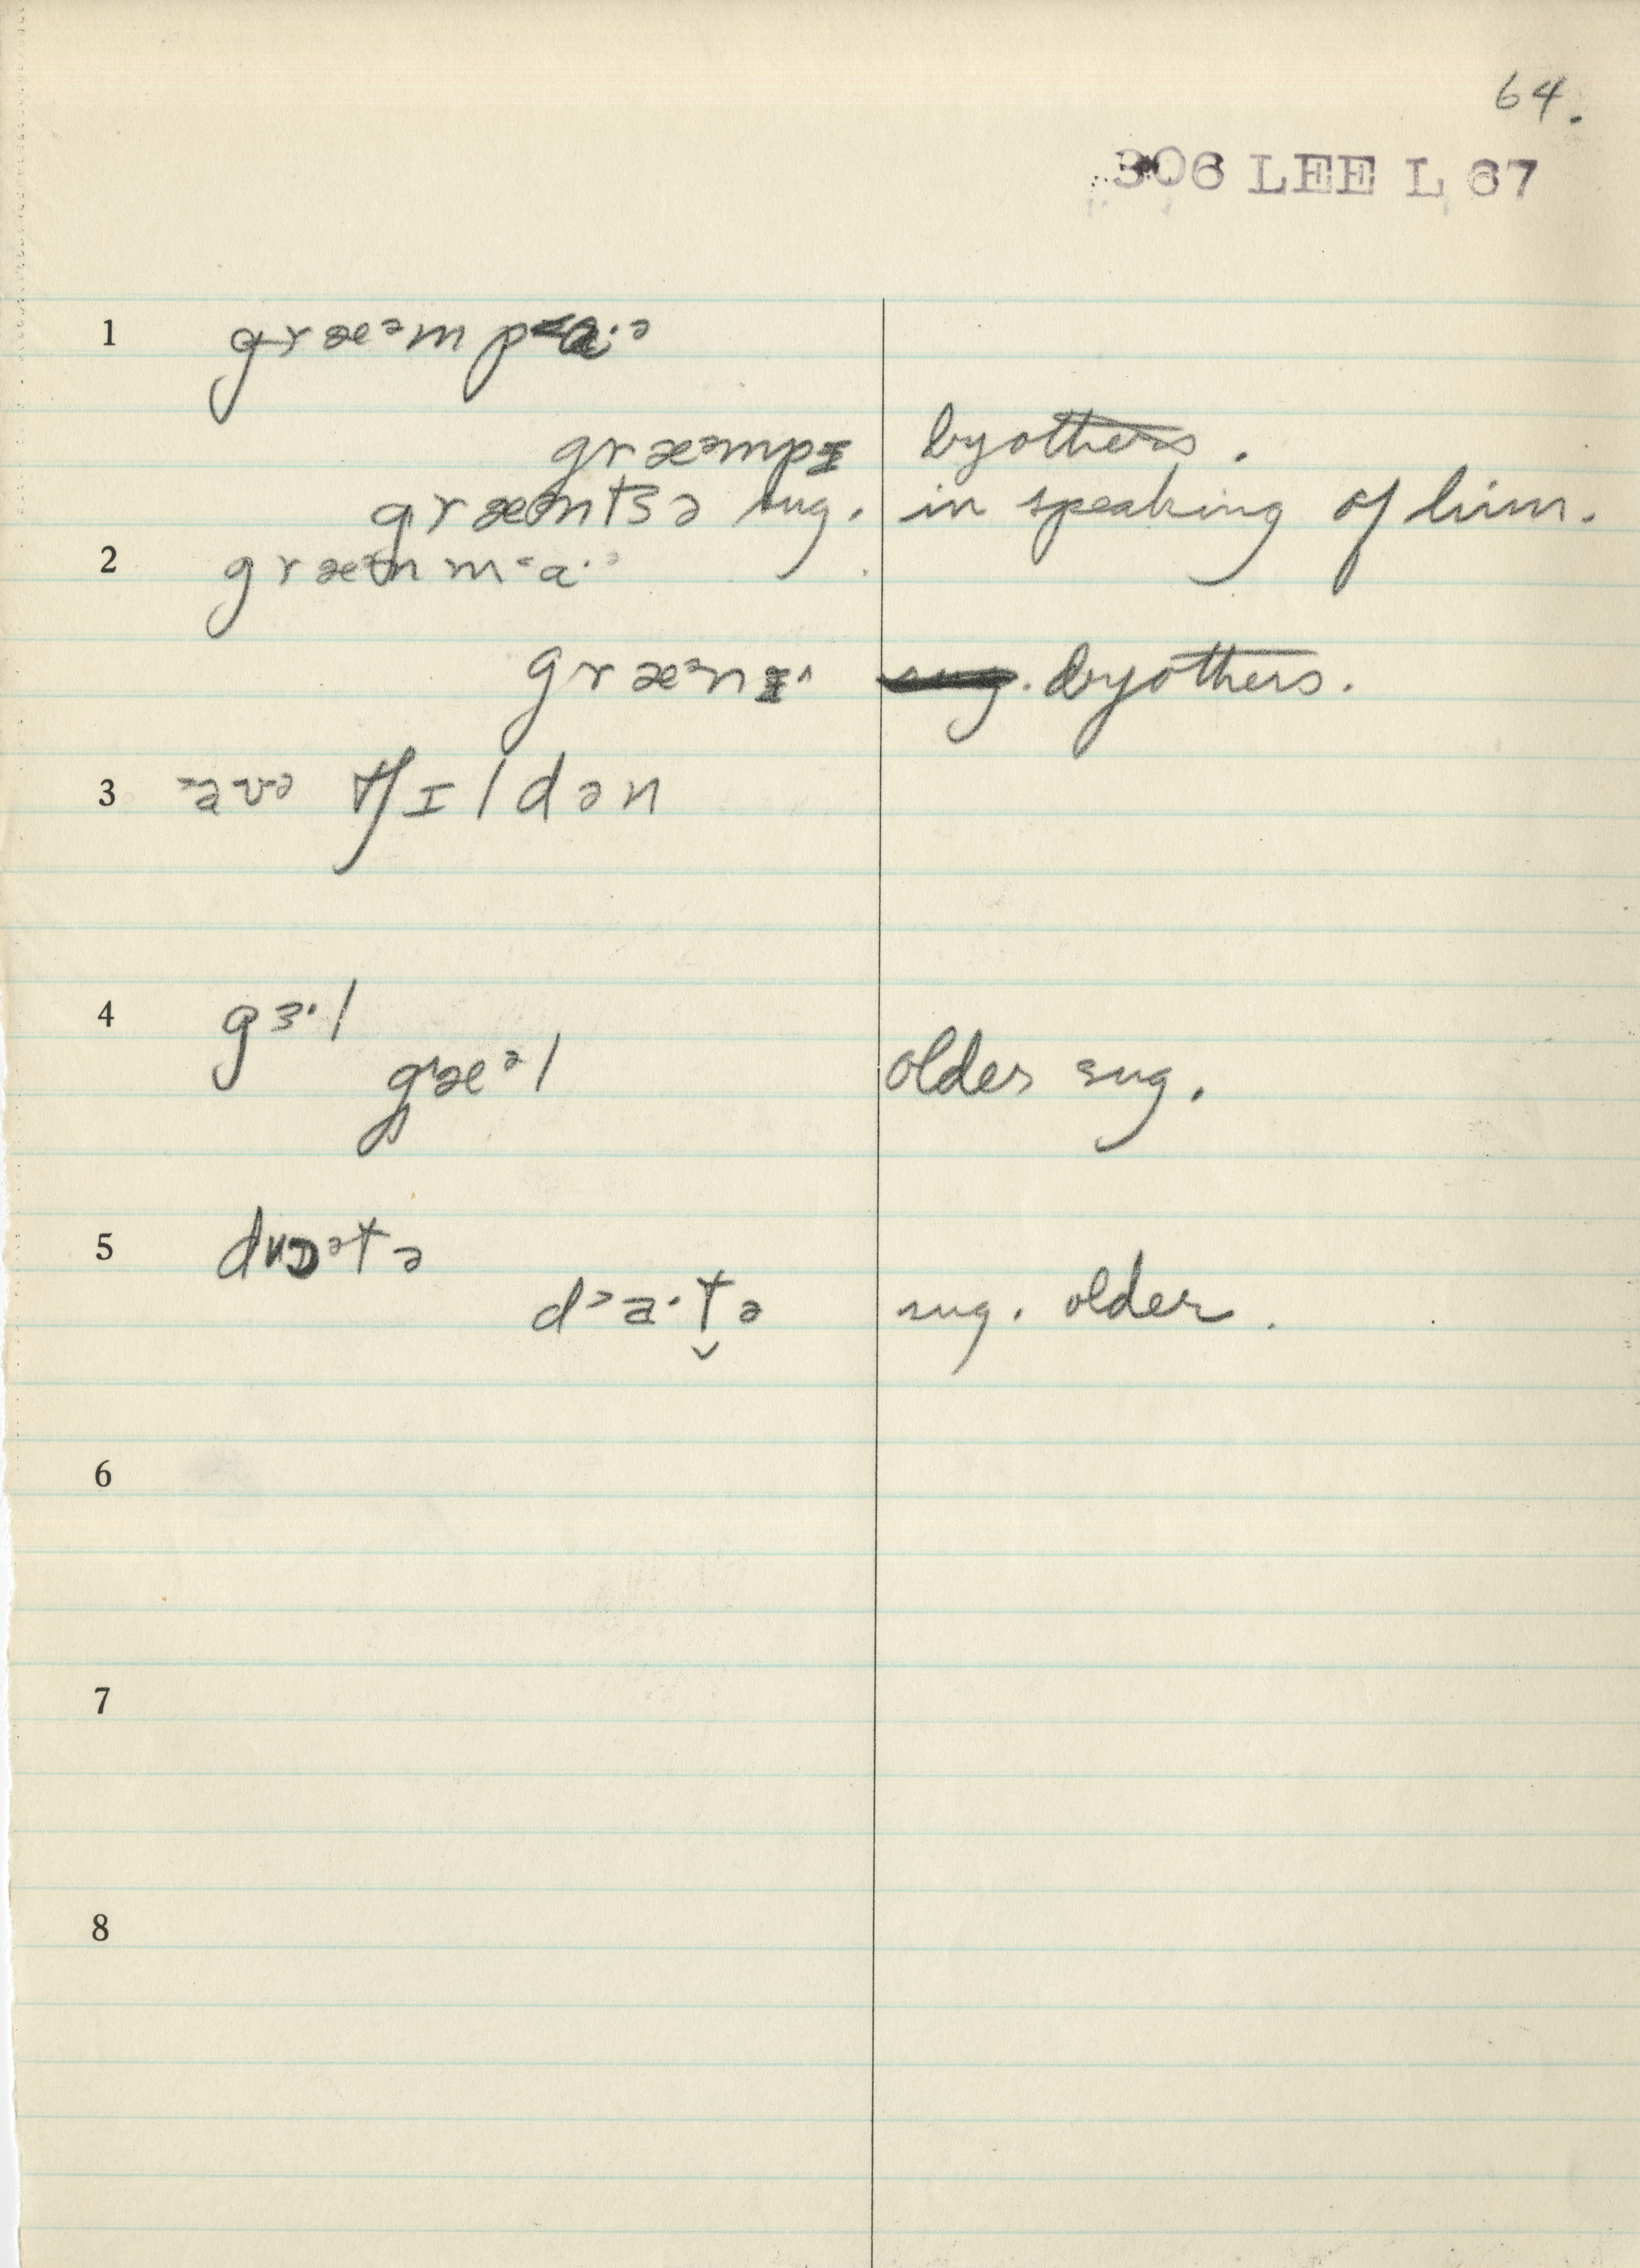 64.
306 LEE L 67
1 græᵊm p<ɑ·ᵊ
græᵊmpɪ by others.
græᵊntsə sug. in speaking of him.
2 græᵊn m<ɑ·ᵊ
græᵊnɪ^ sug. by others.
3 >a və tʃɪldən
4 gɜ·l
gæᵊl older sug.
5 dɒᵊtə
d>a·t̬ə sug. older.
6
7
8